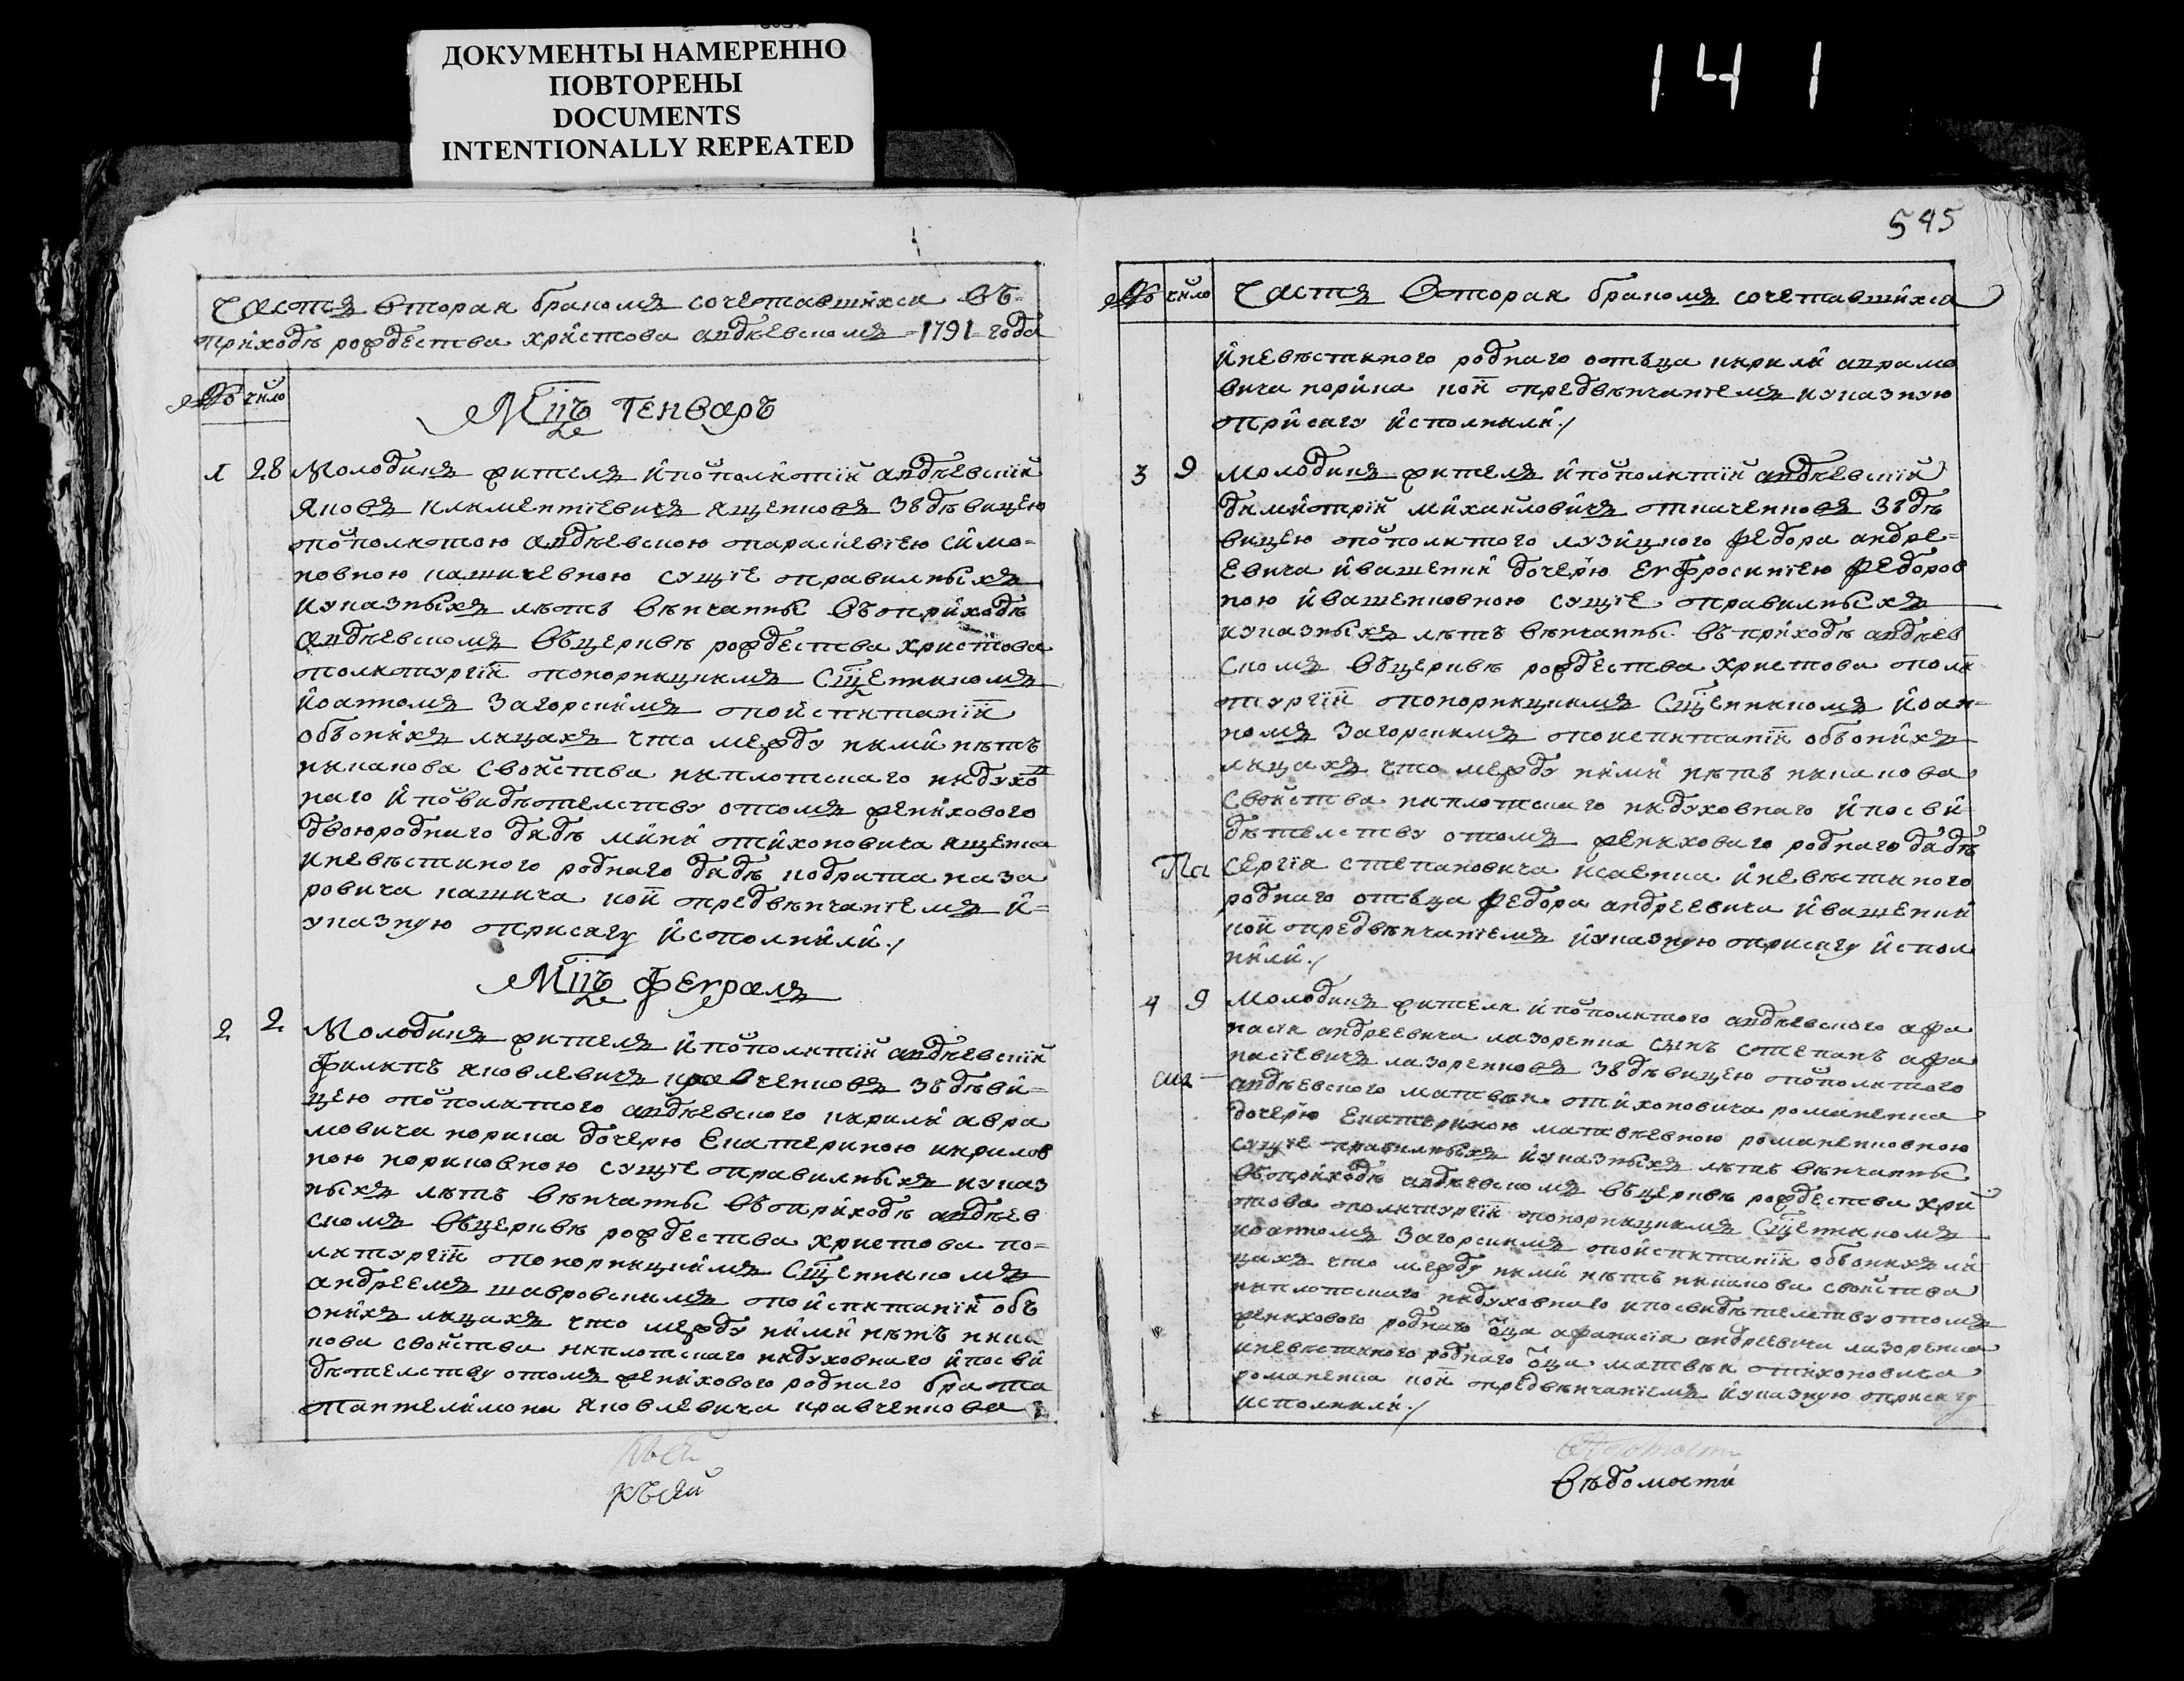 ДОКУМЕНТЫ НАМЕРЕННО
ПОВТОРЕНЫ
DOCUMENTS
INTENTIONALLY REPEATED
141
Часть вторая бракомъ сочетавшихся въ
приходѣ рождества христова андѣевскомъ 1791 года
№ число
Мцъ генваръ
1 28 Молодикъ житель и пополитій андѣевскій
яковъ климентіевичъ ященковъ зъ дѣвицею
пополитою андѣевскою параскевіею симо-
новною кашичевною сущіе правилныхъ
и указныхъ лѣтъ вѣнчанны въ приходѣ
андѣевскомъ въ церквѣ рождества христова
по литургіи попорницкимъ сщенникомъ
иоанномъ загорскимъ по испитаніи
объ онихъ лицахъ что между ними нѣтъ
никакова свойства ни плотскаго ни духов
наго и по видѣтелству о томъ женихового
двоюродного дядѣ мини тихоновича ященка
и невѣстиного родного дядѣ кодрата наза
ровича кашича кои предвѣнчаніемъ и
указную присягу исполнили
Мцъ февраль
2 2 Молодикъ житель и пополитій андѣевскій
филипъ яковлевичъ кравченковъ зъ дѣви-
цею пополитого андѣевского кирили авра
мовича норика дочерю екатериною кирилов
ною нориковною сущіе правилныхъ и указ
ныхъ лѣтъ вѣнчанны въ приходѣ андѣев
скомъ въ церквѣ рождества христова по-
литургіи попорницкимъ сщенникомъ
андреемъ шавровскимъ по испитаніи объ
онихъ лицахъ что между ними нѣтъ ника
кова свойства ни плотскаго ни духовнаго и по сви
дѣтелству о томъ женихового родного брата
пантелимона яковлевича кравченкова
№ число Часть вторая бракомъ сочетавшихся
и невѣстиного родного отъца кирили аврамо
вича норика кои предвѣнчаніемъ и указную
присягу исполнили
3 9 молодикъ житель и пополитій андѣевскій
димитрій михайловичъ ткаченковъ зъ дѣ
вицею пополитого лузицкого федора андре-
евича ивашенки дочерю ефросиніею федоров
ною ивашенковною сущіе правилныхъ
и указныхъ лѣтъ вѣнчанны въ приходѣ андѣев
скомъ въ церквѣ рождества христова по ли
тургіи попорницкимъ сщенникомъ иоан-
номъ загорскимъ по испитаніи объ онихъ
лицахъ что между ними нѣтъ никакова
свойства ни плотскаго ни духовнаго и по сви
дѣтелству о томъ женихового родного дядѣ
сергія степановича исаенка и невѣстиного
родного отъца федора андреевича ивашенки
кои предвѣнчаніемъ и указную присягу испол
нили
4 9 молодикъ жителя и пополитого андѣевского афа
насія андреевича лазоренка сынъ степанъ афа
насіевичъ лазоренковъ зъ дѣвицею пополитого
андѣевского матвѣя тихоновича романенка
дочерю екатериною матвѣевною романенковною
сущіе правилныхъ и указныхъ лѣтъ вѣнчанны
въ приходѣ андѣевскомъ въ церквѣ рождества хри
стова по литургіи попорницкимъ сщенникомъ
иоанномъ загорскимъ по испитаніи объ онихъ ли
цахъ что между ними нѣтъ никакова свойства
ни плотскаго ни духовнаго и по свидѣтелству о томъ
женихового родного оца афанасія андреевича лазоренка
и невѣстиного родного оца матвѣя тихоновича
романенка кои предвѣнчаніемъ и указную присягу
исполнили
къ сей
вѣдомости